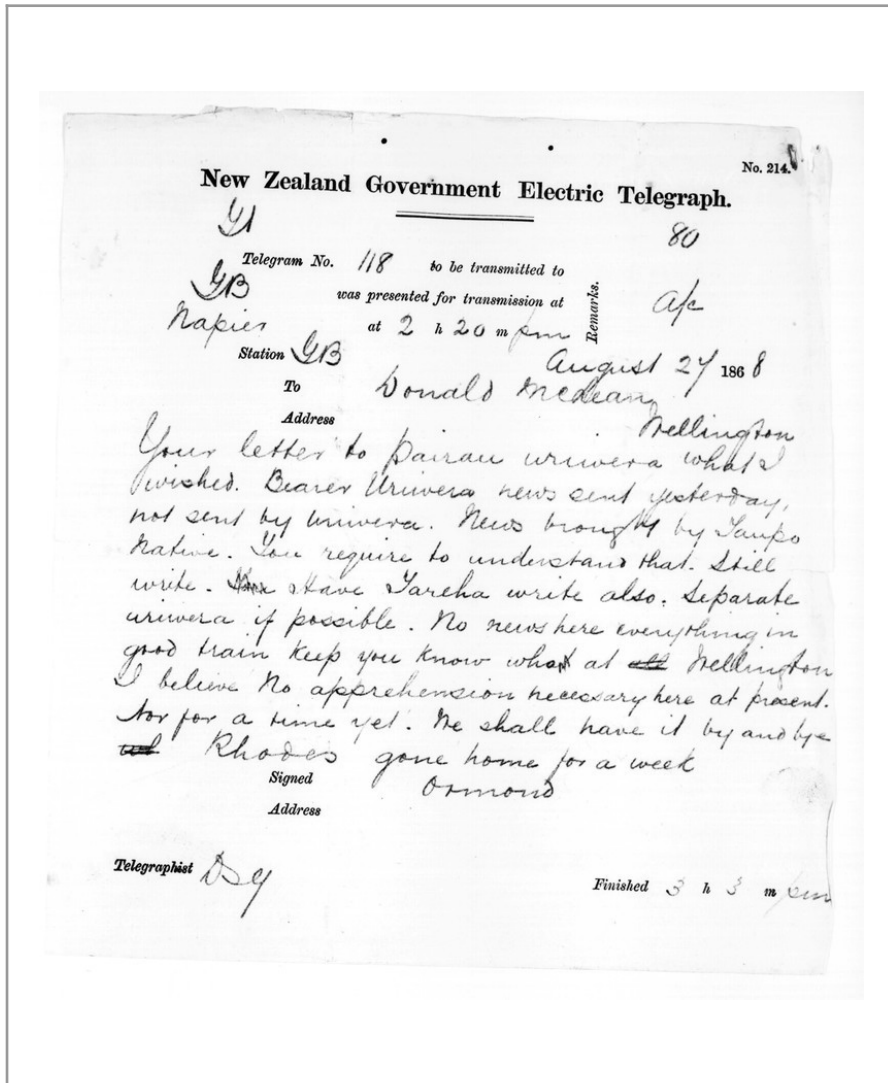 No. 214.
New Zealand Government Electric Telegraph.
80
Telegram No. 118 to be transmitted to
GB was presented for transmission at
Remarks.
a/c
Napier at 2 h 20 m pm
Station GB August 27 1868
To Donald McLean
Address Wellington
Your letter to Pairau uriwera what I
wished. Bearer Uriwera news sent yesterday,
not sent by Uriwera. News brought by Taupo
Native. You require to understand that. Still
write. Have Tareha write also. Separate
uriwera if possible. No news here everything in
good train keep you know what at Wellington
I believe no apprehension necessary here at present.
Nor for a time yet. We shall have it by and bye
Rhodes gone home for a week
Signed Ormond
Address
Telegraphist
Finished 3 h 3 m pm